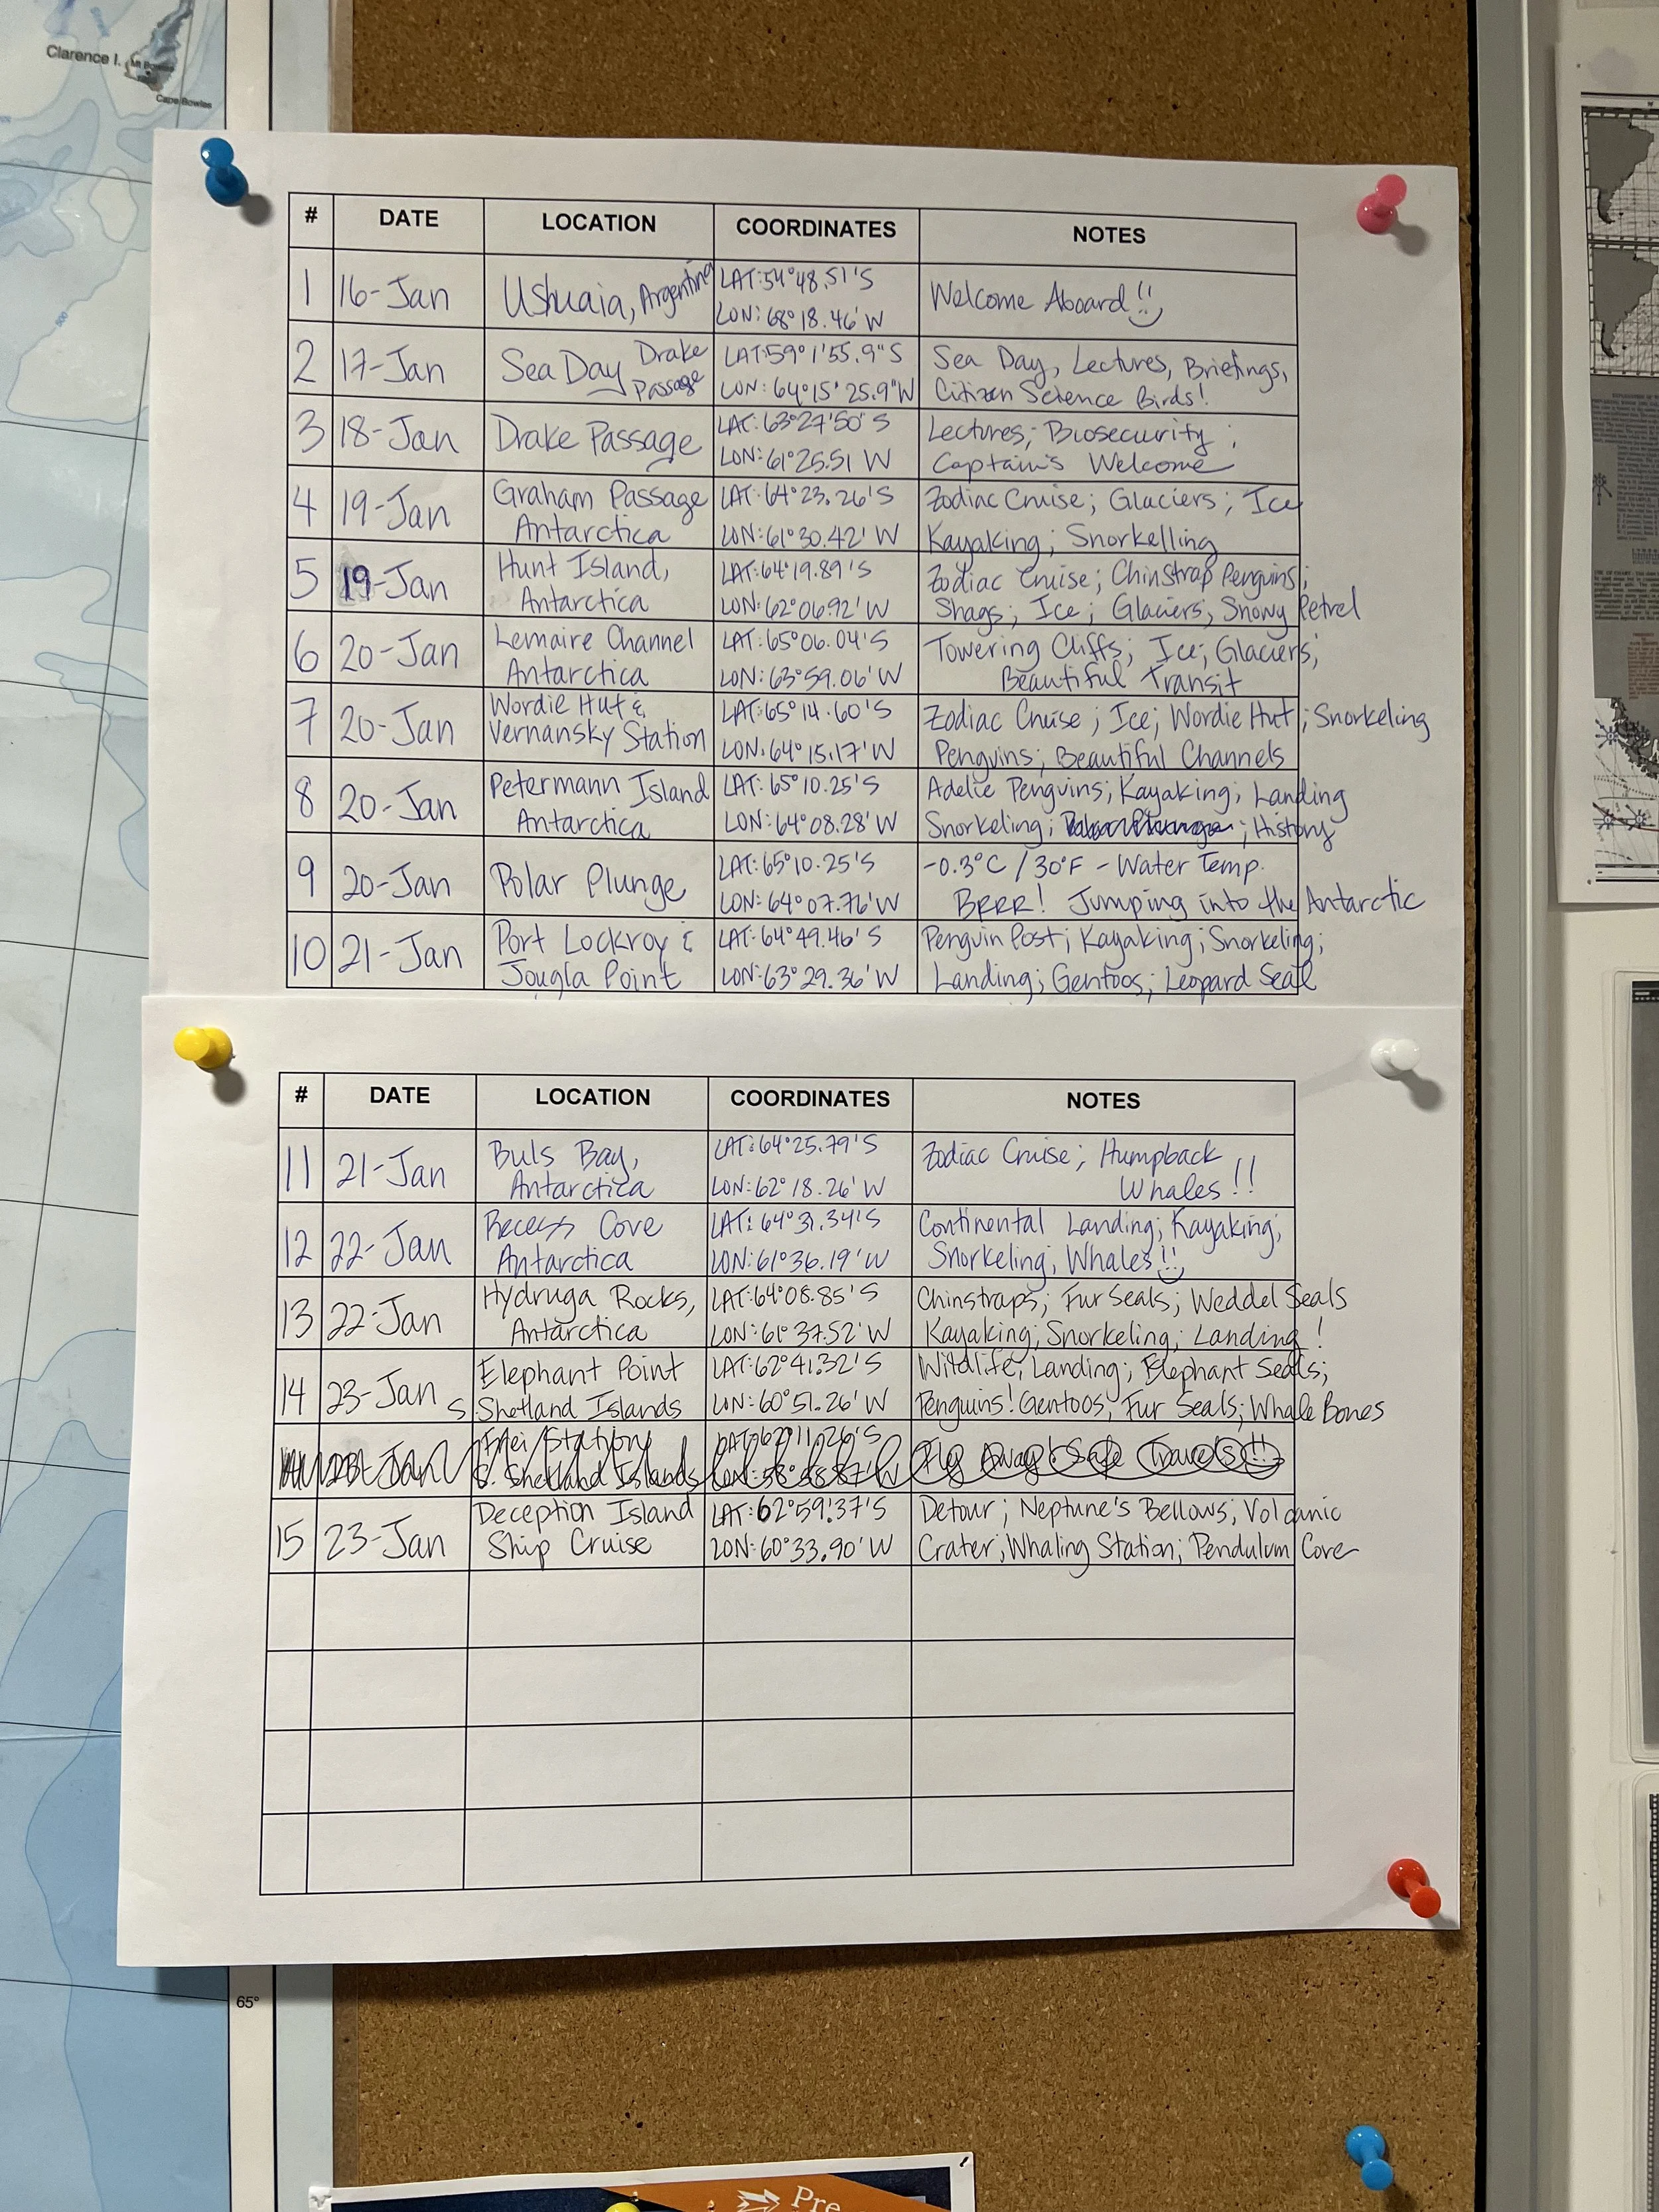 Clarence I.
Mt Bowles
Cape Bowles
500
# DATE LOCATION COORDINATES NOTES
1 16-Jan Ushuaia, Argentina LAT:54°48.51'S Welcome Aboard!!
LON: 68°18.46'W
2 17-Jan Sea Day Drake Passage LAT:59°1'55.9"S Sea Day, Lectures, Briefings,
LON: 64°15'25.9"W Citizen Science Birds!
3 18-Jan Drake Passage LAT: 63°27'50'S Lectures; Biosecurity;
LON: 61°25.51 W Captain's Welcome
4 19-Jan Graham Passage LAT: 64°23.26'S Zodiac Cruise; Glaciers; Ice
Antarctica LON: 61°30.42' W Kayaking; Snorkelling
5 19-Jan Hunt Island, LAT:64°19.89'S Zodiac Cruise; Chinstrap Penguins;
Antarctica LON: 62°06.92'W Shags; Ice; Glaciers; Snowy Petrel
6 20-Jan Lemaire Channel LAT: 65°06.04'S Towering Cliffs; Ice; Glaciers;
Antarctica LON: 63°59.06'W Beautiful Transit
7 20-Jan Wordie Hut & LAT: 65°14.60'S Zodiac Cruise; Ice; Wordie Hut; Snorkeling
Vernansky Station LON: 64°15.17'W Penguins; Beautiful Channels
8 20-Jan Petermann Island LAT: 65°10.25'S Adelie Penguins; Kayaking; Landing
Antarctica LON: 64°08.28'W Snorkeling; Polar Plunge; History
9 20-Jan Polar Plunge LAT: 65°10.25'S -0.3°C / 30°F - Water Temp.
LON: 64°07.76'W BRRR! Jumping into the Antarctic
10 21-Jan Port Lockroy & LAT: 64°49.46'S Penguin Post; Kayaking; Snorkeling;
Jougla Point LON: 63°29.36'W Landing; Gentoos; Leopard Seal
# DATE LOCATION COORDINATES NOTES
11 21-Jan Buls Bay, LAT: 64°25.79'S Zodiac Cruise; Humpback
Antarctica LON: 62°18.26'W Whales!!
12 22-Jan Recess Cove LAT: 64°31.34'S Continental Landing; Kayaking;
Antarctica LON: 61°36.19'W Snorkeling; Whales!!
13 22-Jan Hydruga Rocks, LAT: 64°08.85'S Chinstraps; Fur Seals; Weddel Seals
Antarctica LON: 61°37.52'W Kayaking; Snorkeling; Landing!
14 23-Jan Elephant Point LAT: 62°41.32'S Wildlife; Landing; Elephant Seals;
S. Shetland Islands LON: 60°51.26'W Penguins! Gentoos; Fur Seals; Whale Bones
23-Jan Frei Station LAT: 62°11.26'S Fly Away! Safe Travels!!
S. Shetland Islands LON: 58°58.87'W
15 23-Jan Deception Island LAT: 62°59.37'S Detour; Neptune's Bellows; Volcanic
Ship Cruise LON: 60°33.90'W Crater; Whaling Station; Pendulum Cove
65°
Pre